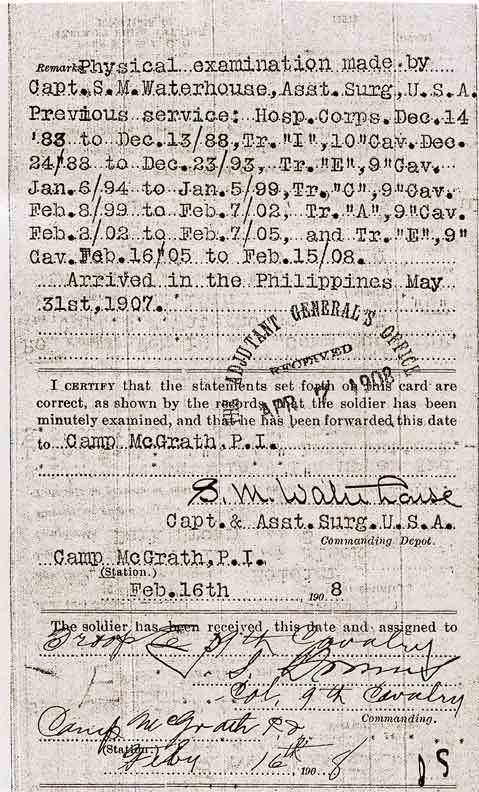 Remarks Physical examination made by
Capt. S. M. Waterhouse, Asst. Surg, U.S.A.
Previous service: Hosp. Corps. Dec. 14
'83 to Dec. 13/88, Tr. "I", 10" Cav. Dec.
24/88 to Dec. 23/93, Tr. "E", 9" Cav.
Jan. 6/94 to Jan. 5/99, Tr, "C", 9" Cav.
Feb. 8/99 to Feb. 7/02, Tr. "A", 9" Cav.
Feb. 8/02 to Feb. 7/05, and Tr. "E", 9"
Cav. Feb. 16/05 to Feb. 15/08.
Arrived in the Philippines May
31st, 1907.
THE ADJUTANT GENERAL'S OFFICE
RECEIVED
APR 7 1908
I CERTIFY that the statements set forth on this card are
correct, as shown by the records, that the soldier has been
minutely examined, and that he has been forwarded this date
to Camp McGrath, P.I.
S. M. Waterhouse
Capt. & Asst. Surg. U.S.A.
Commanding Depot.
Camp McGrath, P.I.
(Station.)
Feb. 16th 1908
The soldier has been received this date and assigned to
Troop E 9th Cavalry
Col. 9th Cavalry
Commanding.
Camp McGrath P.I.
(Station.)
Feby 16th 1908